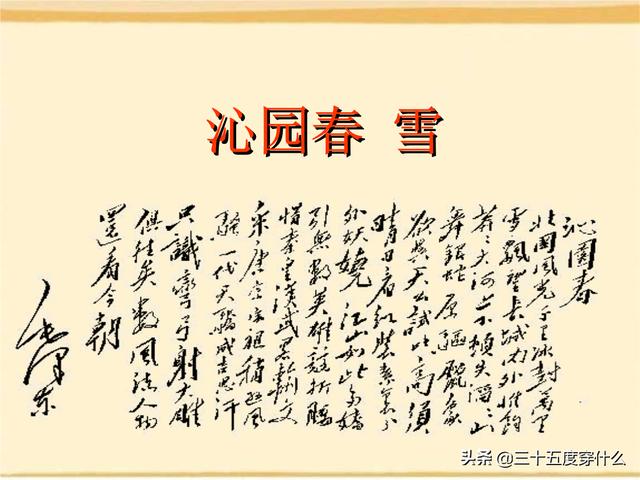 沁园春 雪
沁園春
北國風光千里冰封萬里
雪飄望長城内外惟餘
莽々大河上下頓失滔々山
舞銀蛇原驅臘象
欲與天公試比高須
晴日看紅裝素裹分
外妖嬈江山如此多嬌
引無數英雄競折腰
惜秦皇漢武畧輸文
采唐宗宋祖稍遜風
騷一代天驕成吉思汗
只識彎弓射大雕
俱往矣數風流人物
還看今朝
毛澤東
头条 @三十五度穿什么